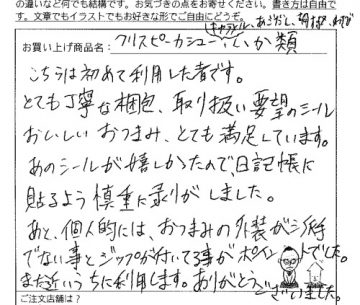 の違いなど何でも結構です。お気づきの点をお寄せください。書き方は自由で
す。文章でもイラストでもお好きな形でご自由にどうぞ。
キャラメル、あらだし、
お買い上げ商品名：クリスピーカシュー、いか類
こちらは初めて利用した者です。
とても丁寧な梱包、取り扱い要望のシール
おいしいおつまみ、とても満足しています。
あのシールが嬉しかったので、日記帳に
貼るよう慎重に剥がしました。
あと、個人的には、おつまみの外装が派手
でない事とジップが付いてる事がポイントでした。
また近いうちに利用します。ありがとうございました。
ご注文店舗は？